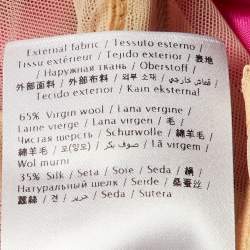 External fabric / Tessuto esterno /
Tissu extérieur / Tejido exterior / 表地
/ Наружная ткань / Oberstoff /
外部面料 / 外部布料 / 외부 소재 / قماش خارجي /
Tecido exterior / Kain eksternal
65% Virgin wool / Lana vergine /
Laine vierge / Lana virgen / 毛 /
Чистая шерсть / Schurwolle / 綿羊毛
/ 綿羊毛 / 모(양모) / / Lã virgem /
Wol murni
35% Silk / Seta / Soie / Seda / 絹 /
Натуральный шелк / Seide / 桑蚕丝 /
蠶絲 / 견 / حرير / Seda / Sutera